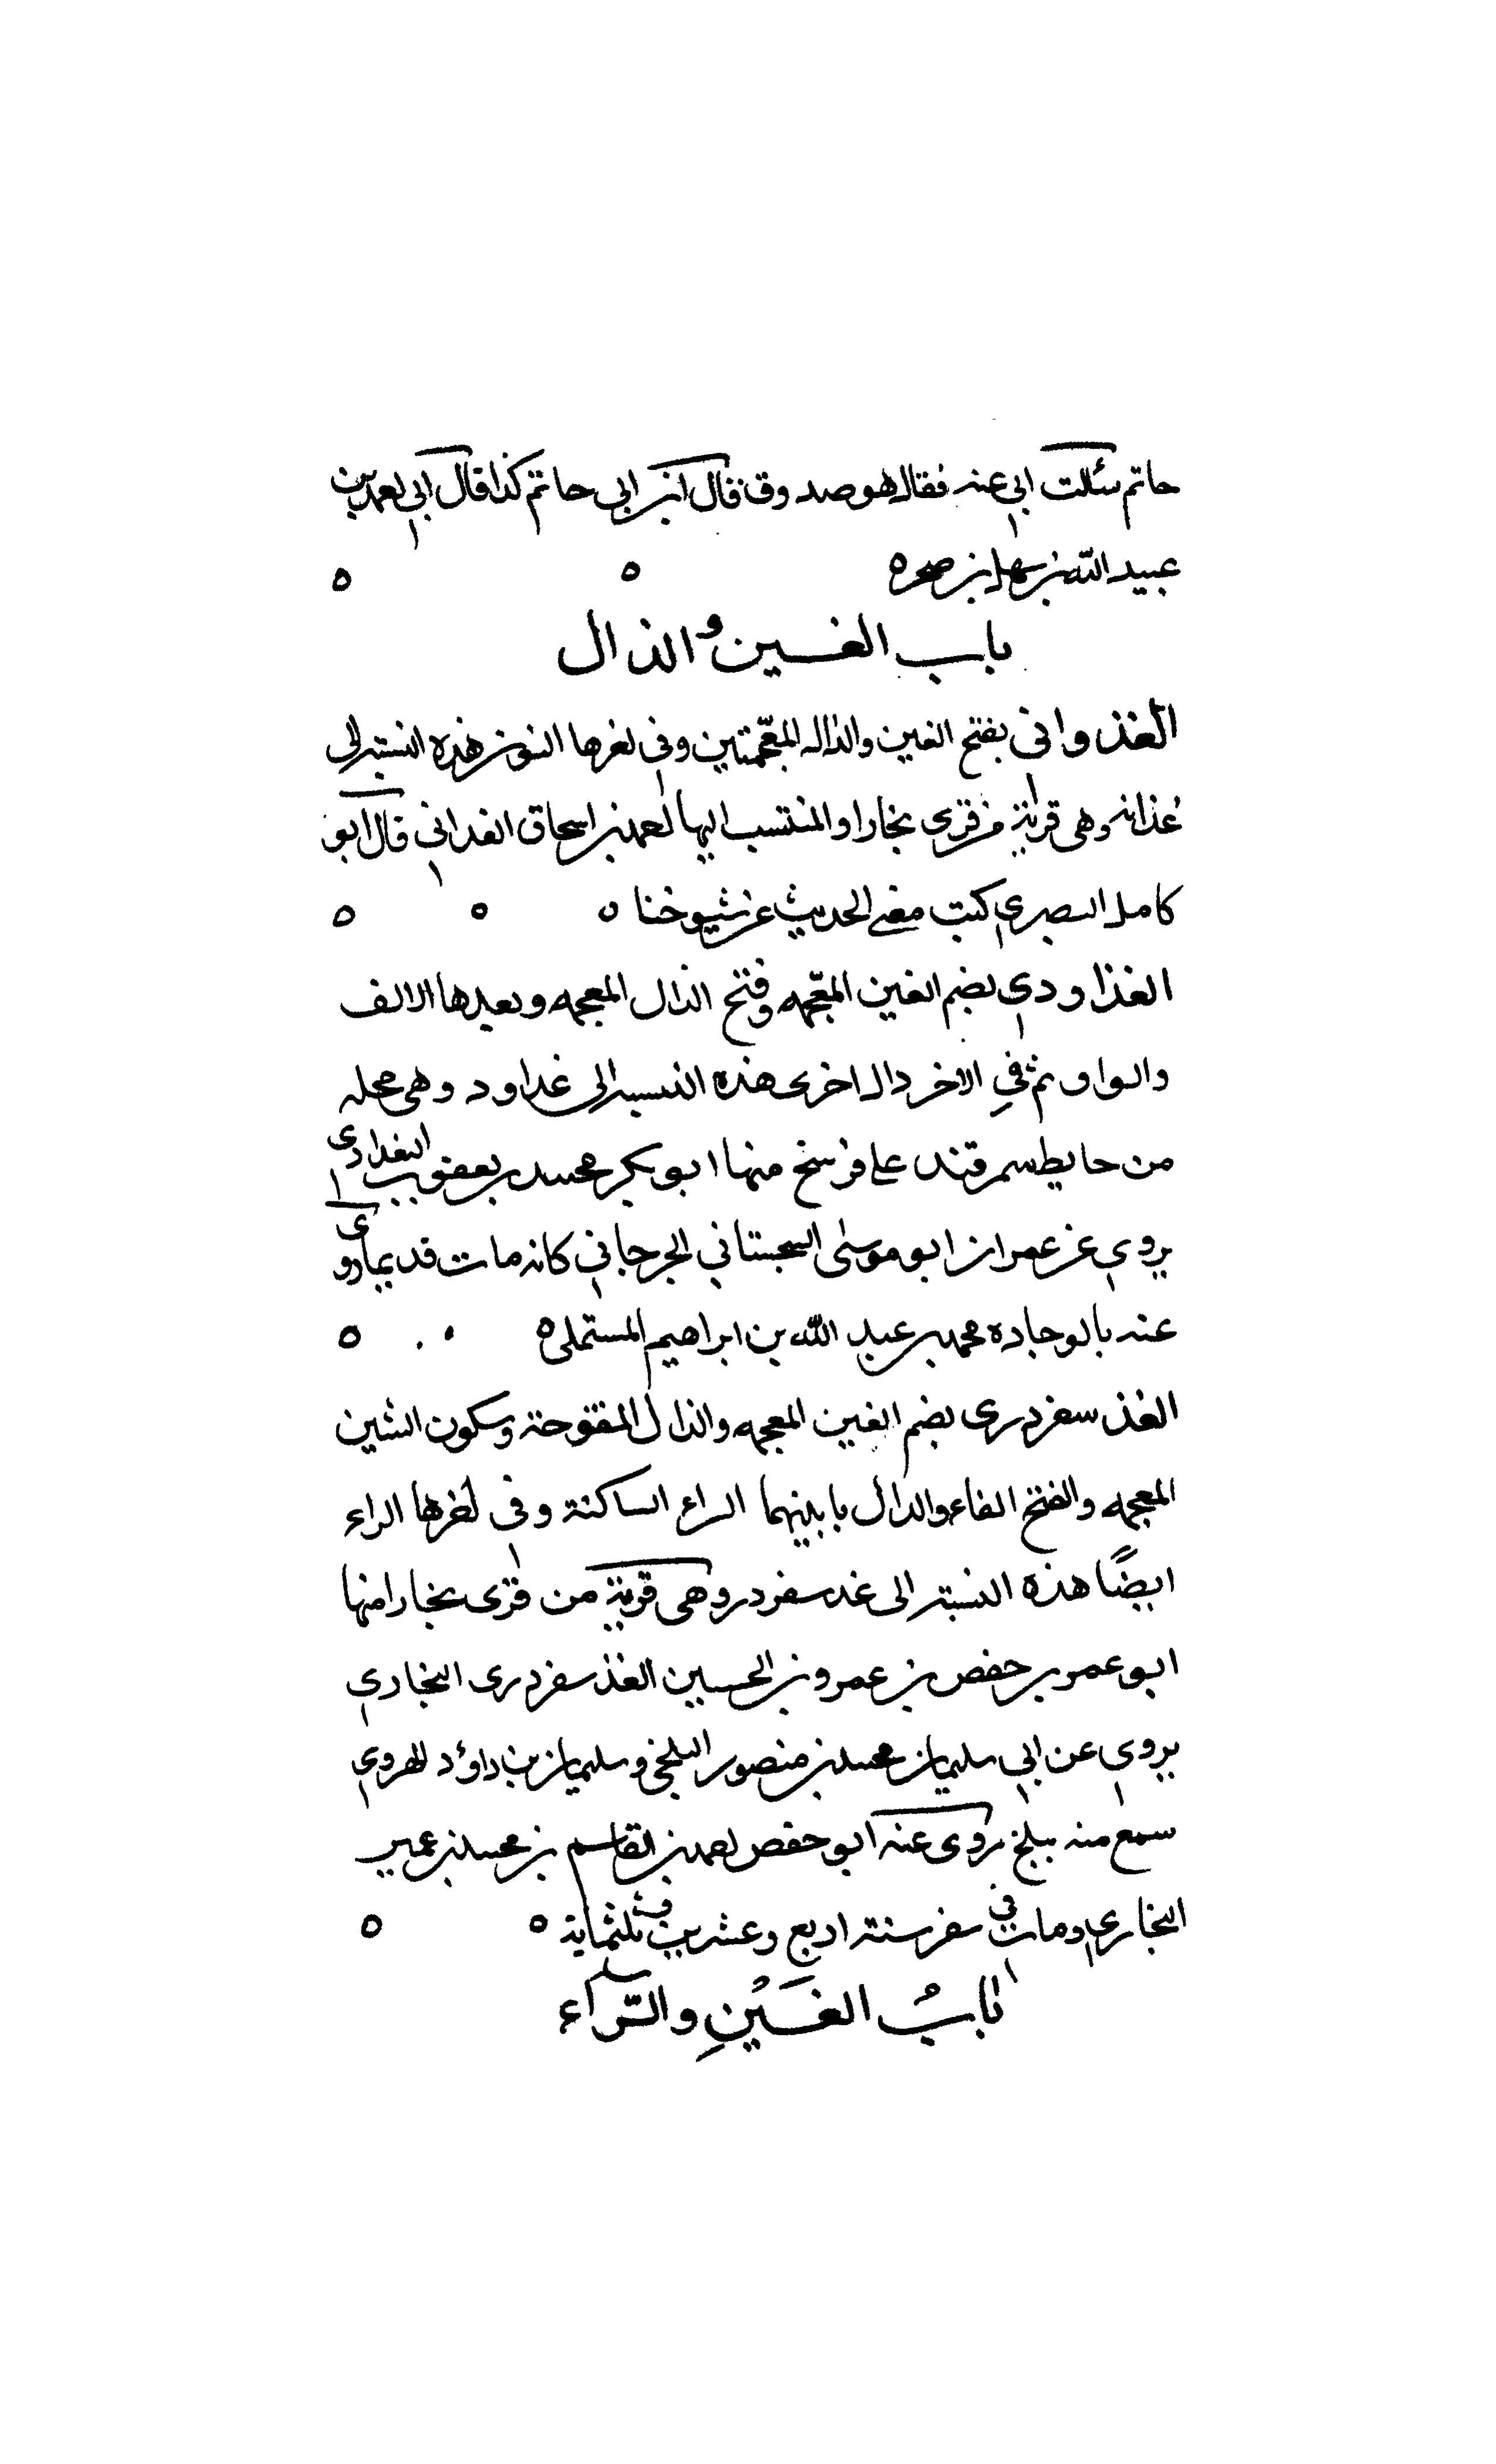 حاتم سئلت ابي عنه فقال هو صدوق قال ابن ابي حاتم كذا قال ابي احمد بن
عبيد الله بن سهل بن صخره
باب الغين والذال
الغذواني بفتح الغين والذال المعجمتين وفي اخرها النون هذه النسبة الى
غذانه وهي قرية من قرى بخارا والمنتسب اليها احمد بن اسحاق الغذاني قال ابو
كامل البصري كتب معي الحديث عن شيوخنا
الغذاودي بضم الغين المعجمه وفتح الذال المعجمه وبعدها الالف
والواو ثم في الاخر دال اخرى هذه النسبة الى غذاود وهي محله
من حايط سمرقند على فرسخ منها ابو بكر محمد بن يعقوب الغذاودي
يروي عن عمران ابو موسى السجستاني الجرجاني كانه مات قديما روى
عنه بالوجاده محمد بن عبد الله بن ابراهيم المستملي
الغذسفردرى بضم الغين المعجمه والذال المفتوحة وسكون الشين
المعجمه والفتح الفاء والدال بابينهما الراء الساكنة وفي اخرها الراء
ايضًا هذه النسبة الى غدسفردر وهي قرية من قرى بخارا منها
ابو عمر بن حفص بن عمرو بن الحسين الغذسفردرى البخاري
يروي عن ابي سليمان محمد بن منصور البلخي وسليمان بن داؤد الهروي
سمع منه ببلخ روى عنه ابو حفص احمد بن القاسم بن محمد بن عمير
البخاري ومات في سفر سنة اربع وعشرين وثلثماية
بابُ الغَيْنِ والرّاء